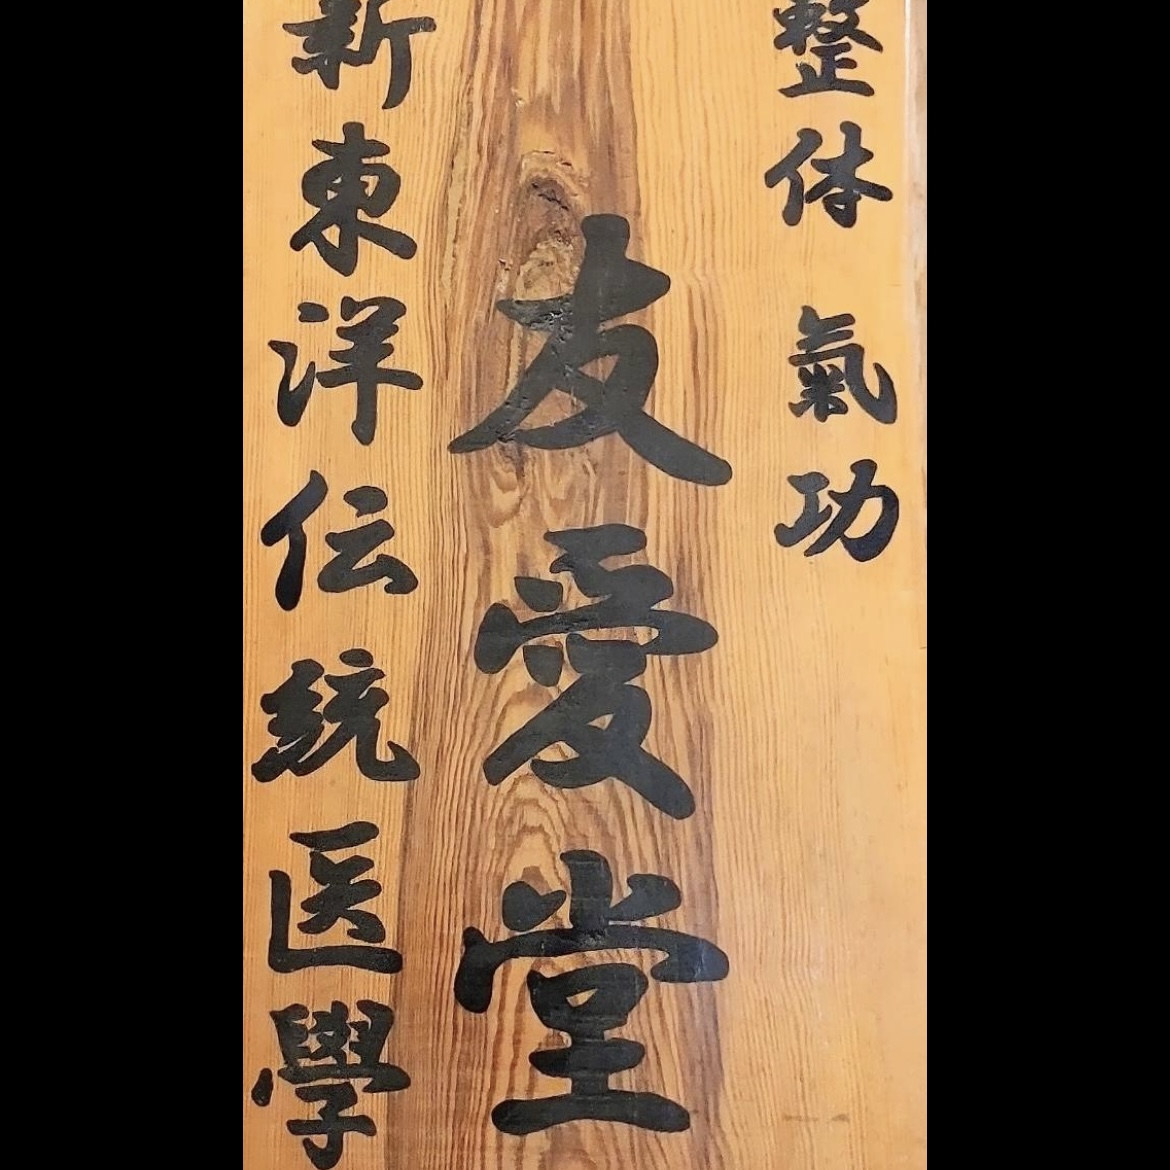 整体 氣功
友愛堂
新東洋伝統医學